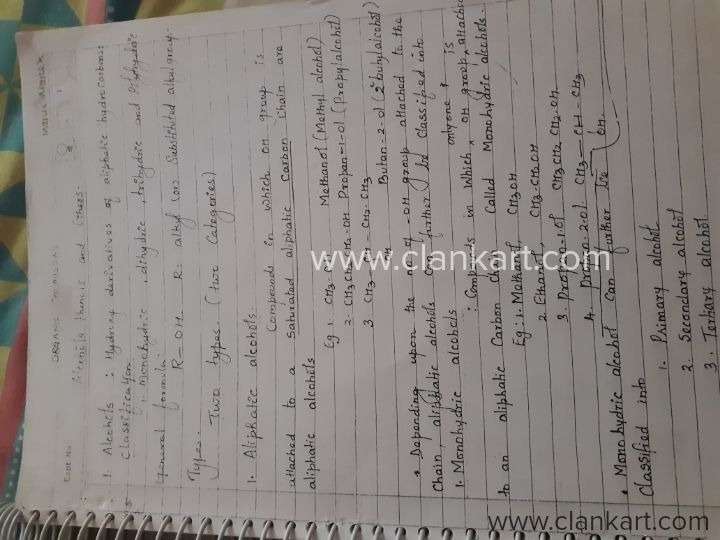 ORGANIC CHEMISTRY
Alcohols, Phenols and Ethers.
1. Alcohols : Hydroxy derivatives of aliphatic hydrocarbons
Classification
1. Monohydric, dihydric, trihydric and Polyhydric
General formula
R-OH R = alkyl (or) Substituted alkyl group
Types: Two types (Two Categories)
1. Aliphatic alcohols.
Compounds in which OH group is
attached to a saturated aliphatic Carbon Chain are
aliphatic alcohols
Eg 1. CH3 OH Methanol (Methyl alcohol)
2. CH3 CH2 CH2-OH Propan-1-ol (Propyl alcohol)
3 CH3 - CH - CH2-CH3
OH
Butan-2-ol (2° butyl alcohol)
* Depending upon the no. of -OH group attached to the
Chain, aliphatic alcohols can further be classified into
1. Monohydric alcohols
: Compounds in Which anyone OH group is attached
to an aliphatic Carbon chain Called Monohydric alcohols.
Eg: 1. Methanol CH3OH
2. Ethanol CH3-CH2OH
3. Propan-1-ol CH3 CH2 CH2-OH
4. Propan-2-ol CH3-CH CH3
OH
• Monohydric alcohol can further be
Classified into
1. Primary alcohol
2. Secondary alcohol
3. Tertiary alcohol
www.clankart.com
www.clankart.com